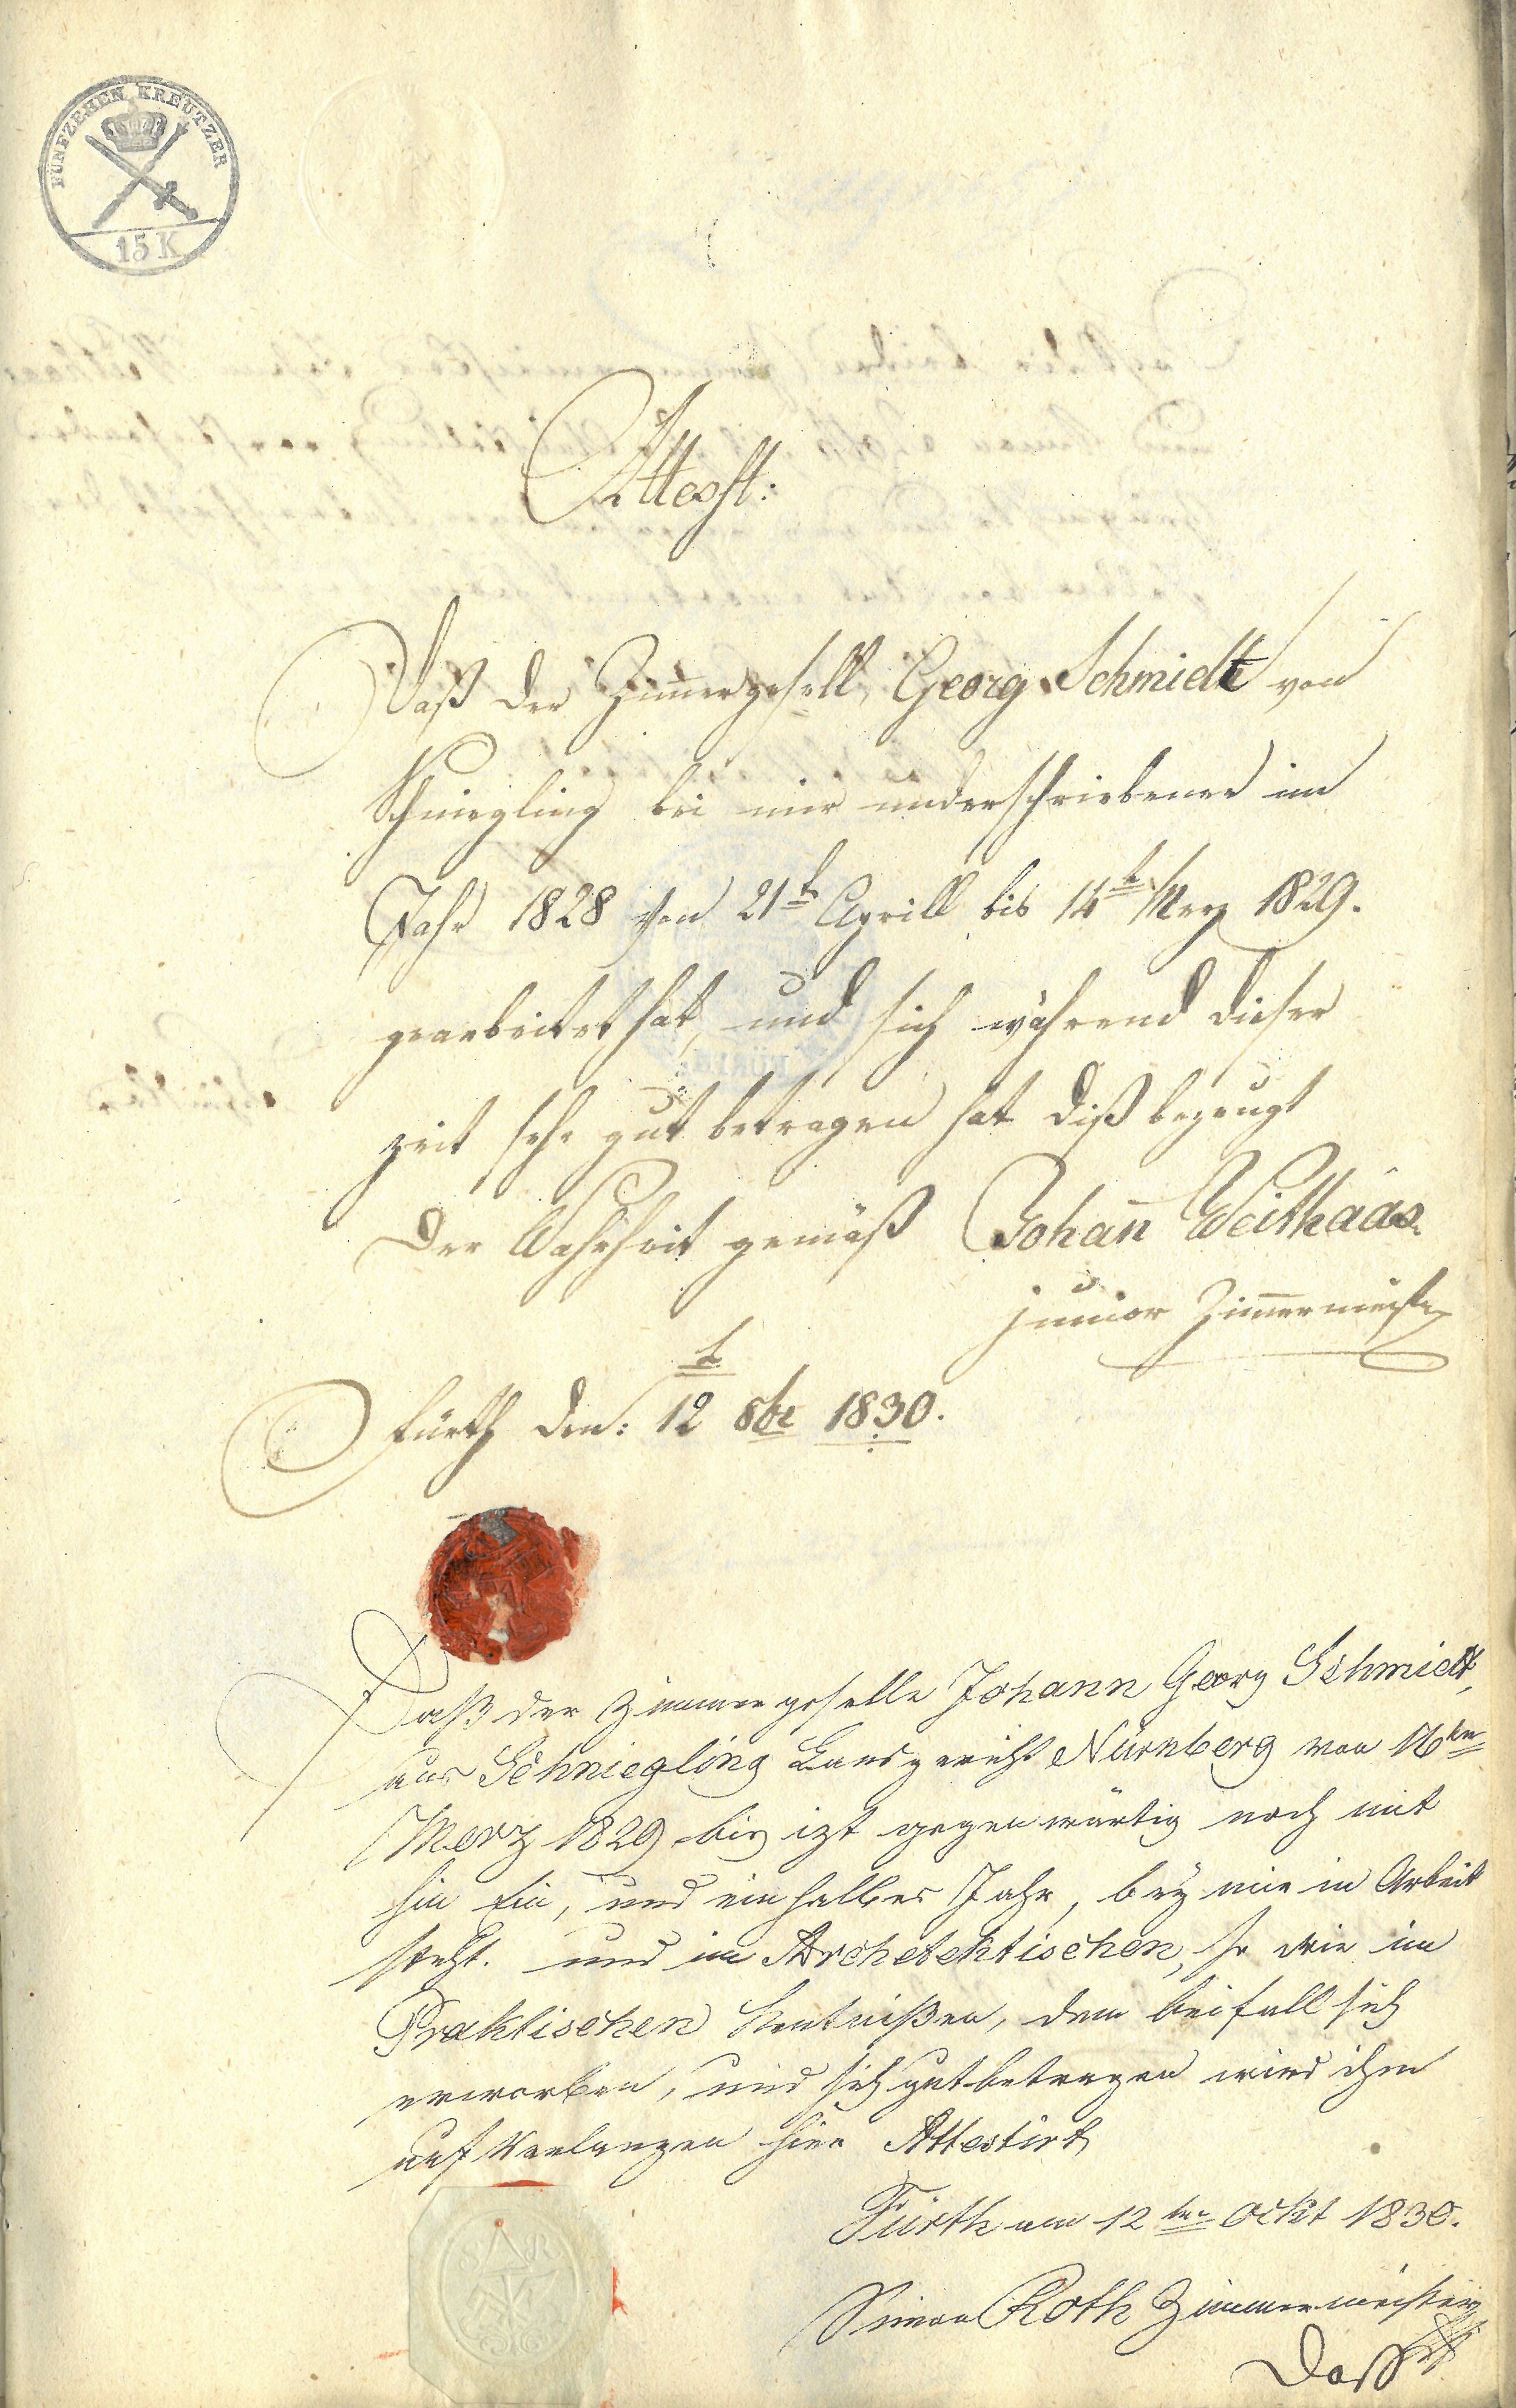 FÜNFZEHEN KREUTZER
15 K
Attest:
Daß der Zim̅ergesell, Georg Schmidt von
Schniegling bei mir underschriebener im
Jahr 1828 von 21t Aprill bis 14t Merz 1829.
gearbeitet hat, und sich während dieser
zeit sehr gut betragen hat diß bezeugt
der Wahrheit gemäß Johan̅ Weithaas
junior Zim̅ermeister
Fürth den: 12t 8br 1830.
Daß der Zimmergeselle Johann Georg Schmidt,
aus Schniegling Landgericht Nürnberg von 16ten
Merz 1829 bis izt gegenwärtig noch mit
hin Ein, und ein halbes Jahr, bey mir in Arbeit
steht. und im Archetektischen, so wie im
Praktischen Kentnißen, dem beifall sich
erworben, und sich gut betragen wird ihm
auf Verlangen hier Attestirt
Fürth am 12ten Ockt 1830.
Simon Roth Zimmermeister
Daß